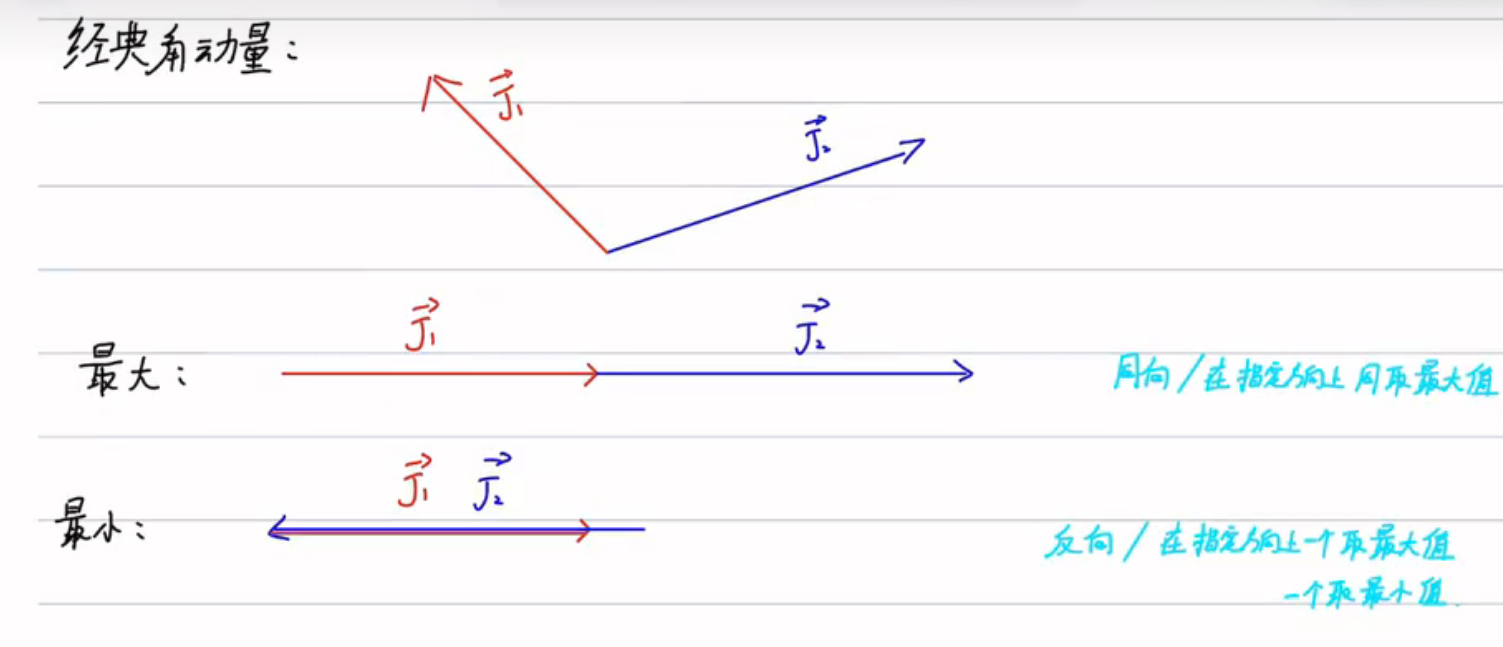 经典角动量：
J⃗₁
J⃗₂
J⃗₁ J⃗₂
最大： 同向/在指定方向上同取最大值
J⃗₁ J⃗₂
最小： 反向/在指定方向上一个取最大值
一个取最小值.